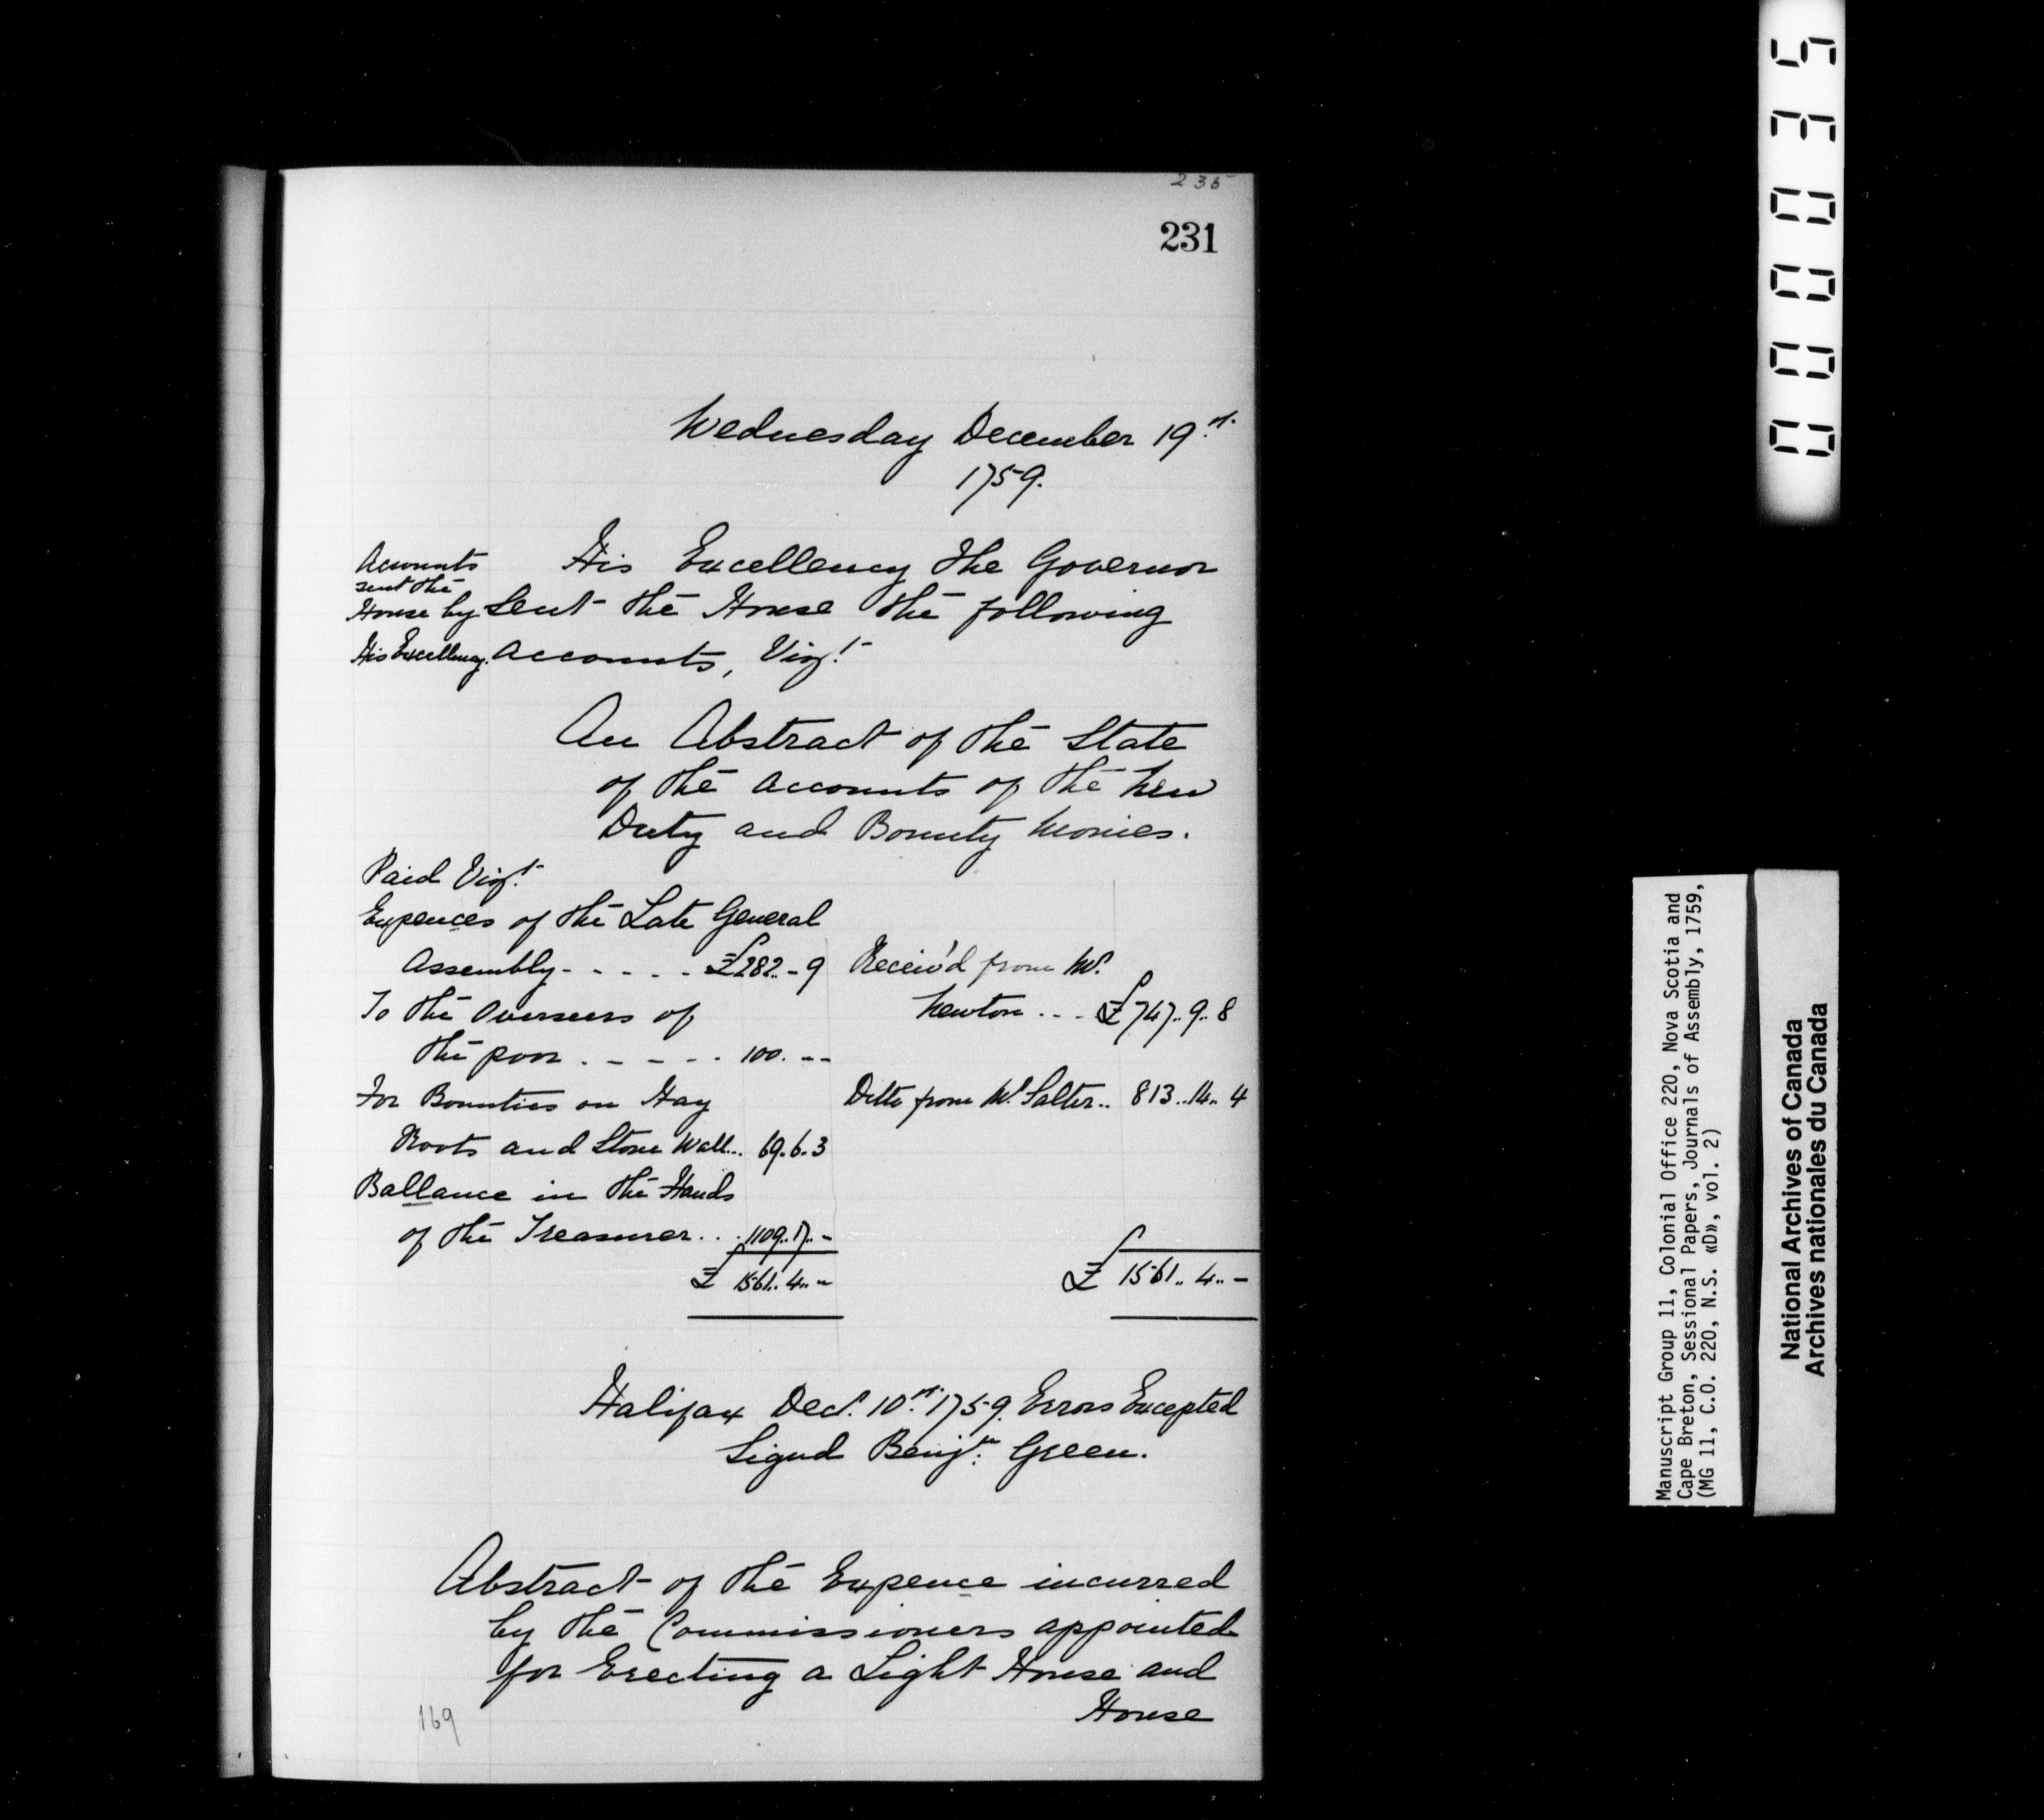 235
231
Wednesday December 19th
1759.
Accounts
sent the
House by
His Excellency.
His Excellency the Governor
Sent the House the following
Accounts, Vizt
An Abstract of the State
of the Accounts of the New
Duty and Bounty Monies.
Paid Vizt
Expences of the Late General
Assembly - - - - - £282.. - 9
To the Overseers of
the poor . - - - - 100. --
For Bounties on Hay
Roots and Stone Wall... 69.. 6.. 3
Ballance in the Hands
of the Treasurer . . . 1109.. 17.. -
£ 1561.. 4.. -
Receiv'd from Mr.
Newton . . . £747.. 9.. 8
Ditto from Mr. Salter.. 813.. 14.. 4
£ 1561.. 4.. -
Halifax Decr. 10th 1759. Errors Excepted
Signd Benjn: Green.
Abstract of the Expence incurred
by the Commissioners appointed
for Erecting a Light House and
House
169
00035
Manuscript Group 11, Colonial Office 220, Nova Scotia and
Cape Breton, Sessional Papers, Journals of Assembly, 1759,
(MG 11, C.O. 220, N.S. «D», vol. 2)
National Archives of Canada
Archives nationales du Canada